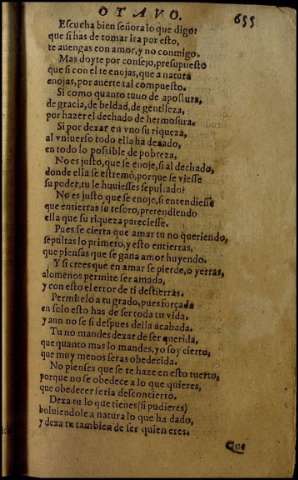 OTAVO. 655
Escucha bien señora lo que digo:
que si has de tomar ira por esto,
te auengas con amor, y no conmigo.
Mas doyte por consejo, presupuesto
que si con el te enojas, que a natura
enojas, por auerte tal compuesto.
Si como quanto tuuo de apostura,
de gracia, de beldad, de gentileza,
por hazer el dechado de hermosura.
Si por dexar en vno su riqueza,
al vniuerso todo ella ha dexado,
en todo lo possible de pobreza.
No es justo, que se enoje, si al dechado,
donde ella se estremó, porque se viesse
su poder, tu le huuiesses sepultado?
No es justo, que se enoje, si entendiesse
que entierras su tesoro, pretendiendo
ella que su riqueza pareciesse.
Pues es cierta que amar tu no queriendo,
sepultas lo primero, y esto entierras,
que piensas que se gana amor huyendo.
Y si crees que en amar se pierde, o yerras,
alomenos permite ser amada,
y con esto el error de ti destierras.
Permitelo a tu grado, pues forçada
en solo esto has de ser toda tu vida,
y aun no se si despues della acabada.
Tu no mandes dexar de ser querida,
que quanto mas lo mandes, yo soy cierto,
que muy menos seras obedecida.
No pienses que se te haze en esto tuerto,
porque no se obedece a lo que quieres,
que obedecer seria desconcierto.
Dexa tu lo que tienes (si pudieres)
boluiendole a natura lo que ha dado,
y dexa tu tambien de ser quien eres.
Que